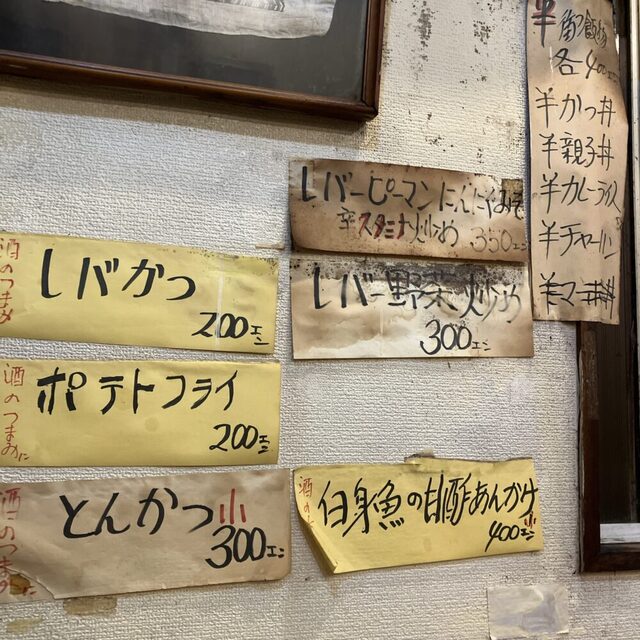 酒のつまみ
レバかつ
200エン
酒のつまみに
ポテトフライ
200エン
酒のつまみに
とんかつ小
300エン
レバーピーマンにんにくみそ
辛スタミナ炒め 350エン
レバー野菜炒め
300エン
白身魚の甘酢あんかけ
小
400エン
半御飯物
各400エン
半かつ丼
半親子丼
半カレーライス
半チャーハン